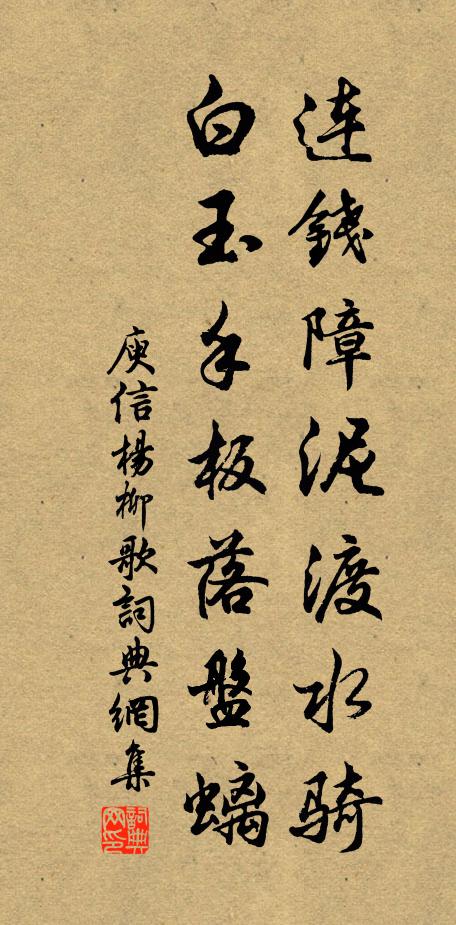 連錢障泥渡水騎
白玉手板落盤螭
庾信楊柳歌詞典網集
詞典网印